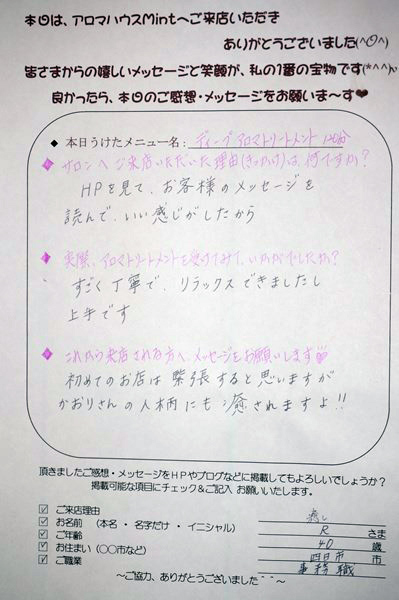 本日は、アロマハウスMintへご来店いただき
ありがとうございました(^O^)
皆さまからの嬉しいメッセージと笑顔が、私の1番の宝物です(*^^*)
良かったら、本日のご感想・メッセージをお願いま～す❤
◆ 本日うけたメニュー名： ディープアロマトリートメント 120分
◆ サロンへご来店いただいた理由(きっかけ)は、何ですか？
HPを見て、お客様のメッセージを
読んで、いい感じがしたから
◆ 実際、アロマトリートメントを受けてみて、いかがでしたか？
すごく丁寧で、リラックスできましたし
上手です
◆ これから来店される方へ、メッセージをお願いします♡
初めてのお店は緊張すると思いますが
かおりさんの人柄にも癒されますよ!!
頂きましたご感想・メッセージをHPやブログなどに掲載してもよろしいでしょうか？
掲載可能な項目にチェック＆ご記入 お願いいたします。
☑ ご来店理由 癒し
☑ お名前 （本名・名字だけ・イニシャル） R さま
☑ ご年齢 40 歳
☑ お住まい（○○市など） 四日市 市
☑ ご職業 事務職
～ご協力、ありがとうございました＾＾～